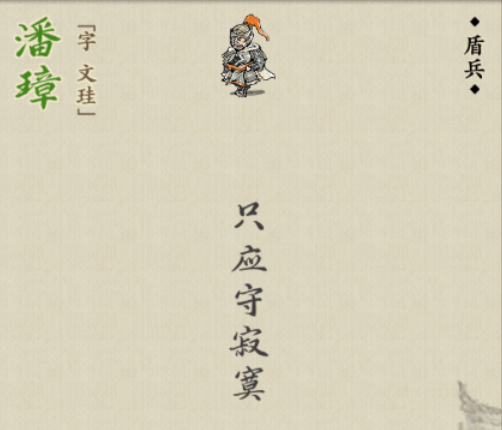 潘璋
「字 文珪」
◆盾兵◆
只应守寂寞